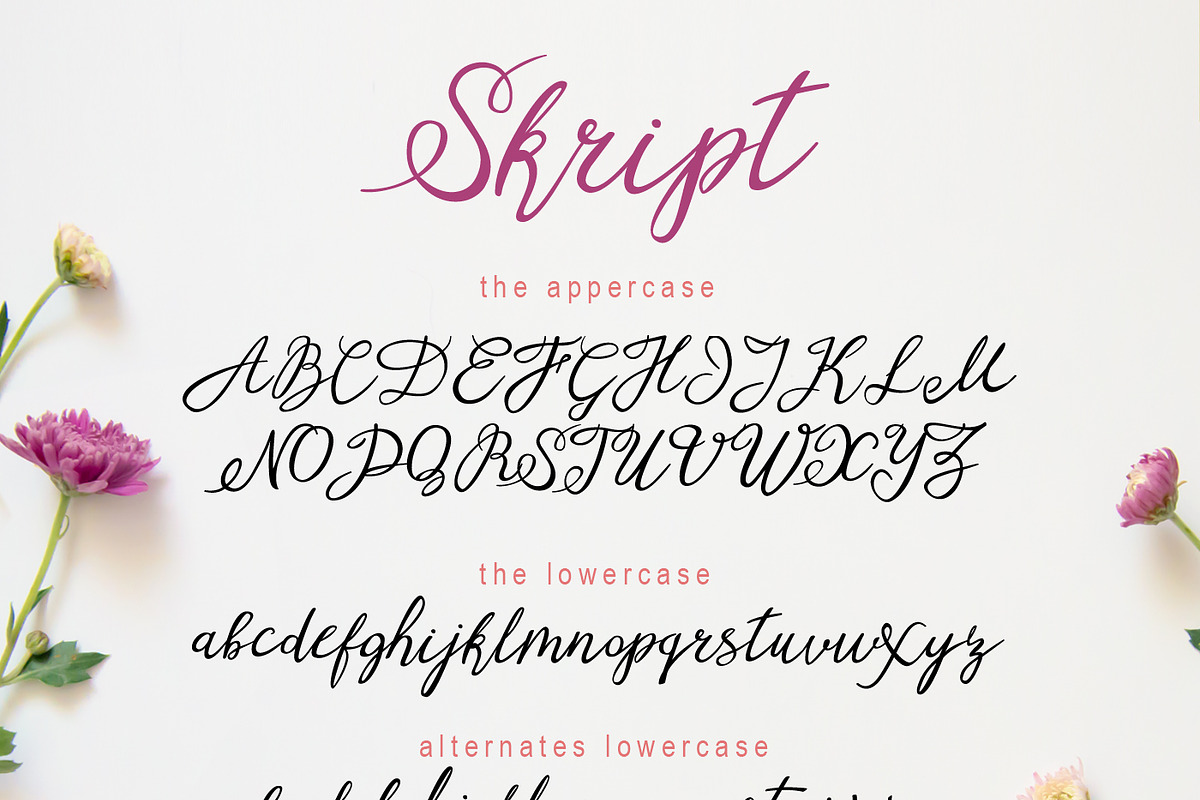 Skript
the appercase
ABCDEFGHIJKLM
NOPQRSTUVWXYZ
the lowercase
abcdefghijklmnopqrstuvwxyz
alternates lowercase